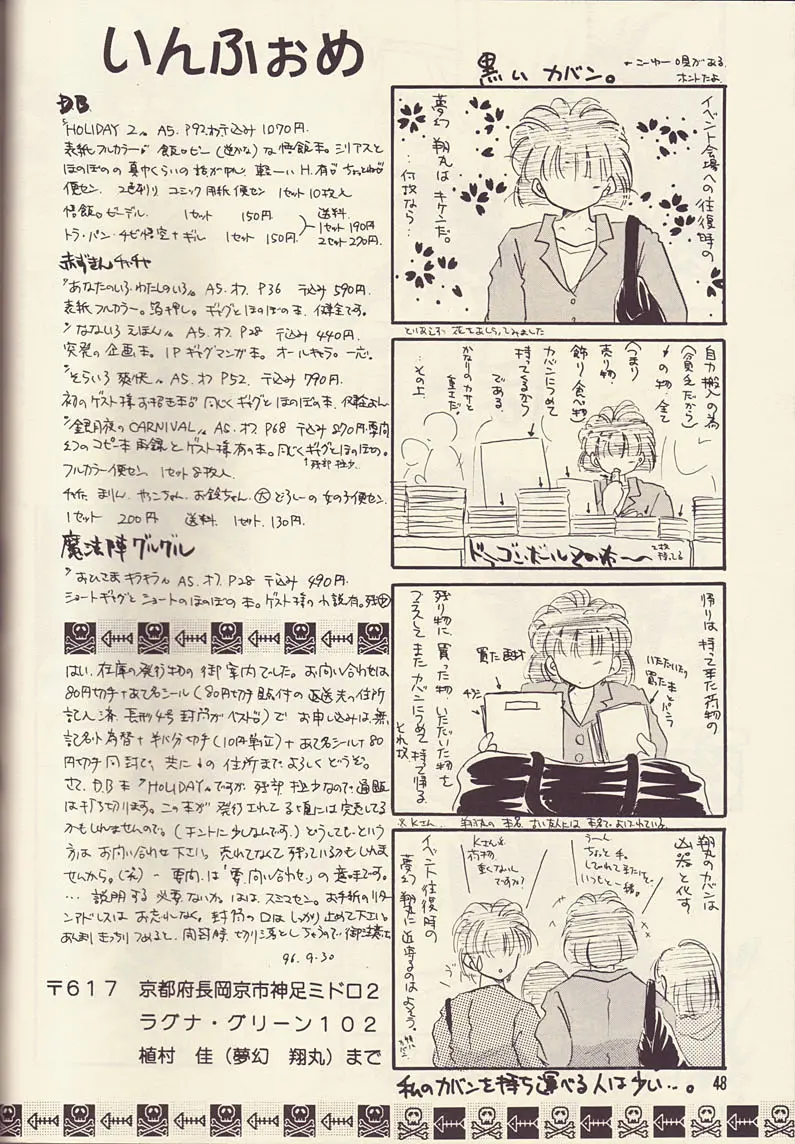 いんふぉめ
D.B.
"HOLIDAY 2" A5. P92. 〒込み 1070円.
便セン. 2色刷り コミック用紙 便セン 1セット10枚入
悟飯。ビーデル. 1セット 150円
トラ・パン・チビ悟空+ギル 1セット 150円
送料.
1セット 190円
2セット 270円.
赤ずきんチャチャ
"あなたのいろ.わたしのいろ" A5. オフ. P36 〒込み 590円.
表紙フルカラー。箔押し。ギャグとほのぼの本. 健全です。
"なないろ えほん" A5. オフ. P28 〒込み 440円.
突発の企画本。1Pギャグマンガ本。オールキャラの一応。
"そらいろ 爽快" A5. オフ P52. 〒込み 790円.
"銀月夜の CARNIVAL" A5. オフ. P68 〒込み 870円.要問
幻のコピー本 再録と ゲスト様 有の本。同じくギャグとほのぼの。
↑残部 極少.
フルカラー便セン. 1セット8枚入.
1セット 200円 送料. 1セット. 130円.
魔法陣グルグル
"おひさま キラキラ" A5. オフ. P28 〒込み 490円.
ショートギャグと ショートのほのぼの 本。ゲスト様の小説有。残少
はい. 在庫の発行物の御案内でした。お問い合わせは
80円切手+あて名シール(80円切手貼付の返送先の住所
記入済. 長形4号 封筒がベスト)で お申し込みは. 無
記名小為替+半パ分切手(10円単位)+あて名シール+80
円切手 同封で. 共に↓の 住所まで. よろしくどうぞ。
さて. D.B本 "HOLIDAY"ですが 残部 極少なので. 通販
は打ち切ります。この本が 発行されてる頃には完売してる
かもしれませんので。(ホントに少しなんです.) どうしても…という
方は お問い合わせ下さい。売れてなくて 残っているかもしれま
せんから。(笑) - 要問.は「要.問い合わせ」の意味です。
… 説明する 必要ないか。ははは. スミマセン。お手紙のリター
ンアドレスは お忘れなく。封筒の口は しっかり止めて下さい。
96. 9. 30
〒617 京都府長岡京市神足ミドロ2
ラグナ・グリーン102
植村 佳(夢幻 翔丸)まで
黒い カバン。
ホントだよ.
イベント会場への往復時の
夢幻 翔丸は キケンだ。
…何故なら…
といあえず 花であしらってみました
自力搬入の為
(貧乏だから)
↓の物. 全て
(つまり
売り物
飾り. 食べ物)
カバンにつめて
持ってくるから
である。
かなりのカサと
重さだ。
…その上.
ドラゴンボールその本〜
帰りは 持って来た荷物の
残り物に. 買った物. いただいた物を
プラスして またカバンにつめて 持って帰る.
それ故
買った画材
チラシ
いただいたり
買った本と
パンフ
翔丸のカバンは
凶器と化す
イベント往復時の
夢幻 翔丸に近寄るのはよそう。
Kさん
荷物
重くないん
ですか?
うーん
ちょっと 手.
しびれてきたけど.
いつもと一緒。
私のカバンを持ち運べる人は少い…。
48